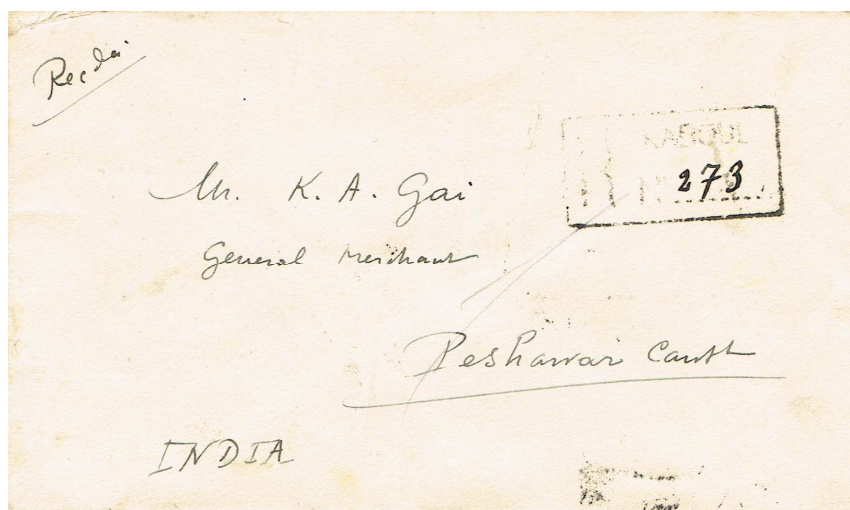 Regd.
KABOUL
R No 273
Mr. K. A. Gai
General Merchant
Peshawar Cantt
INDIA